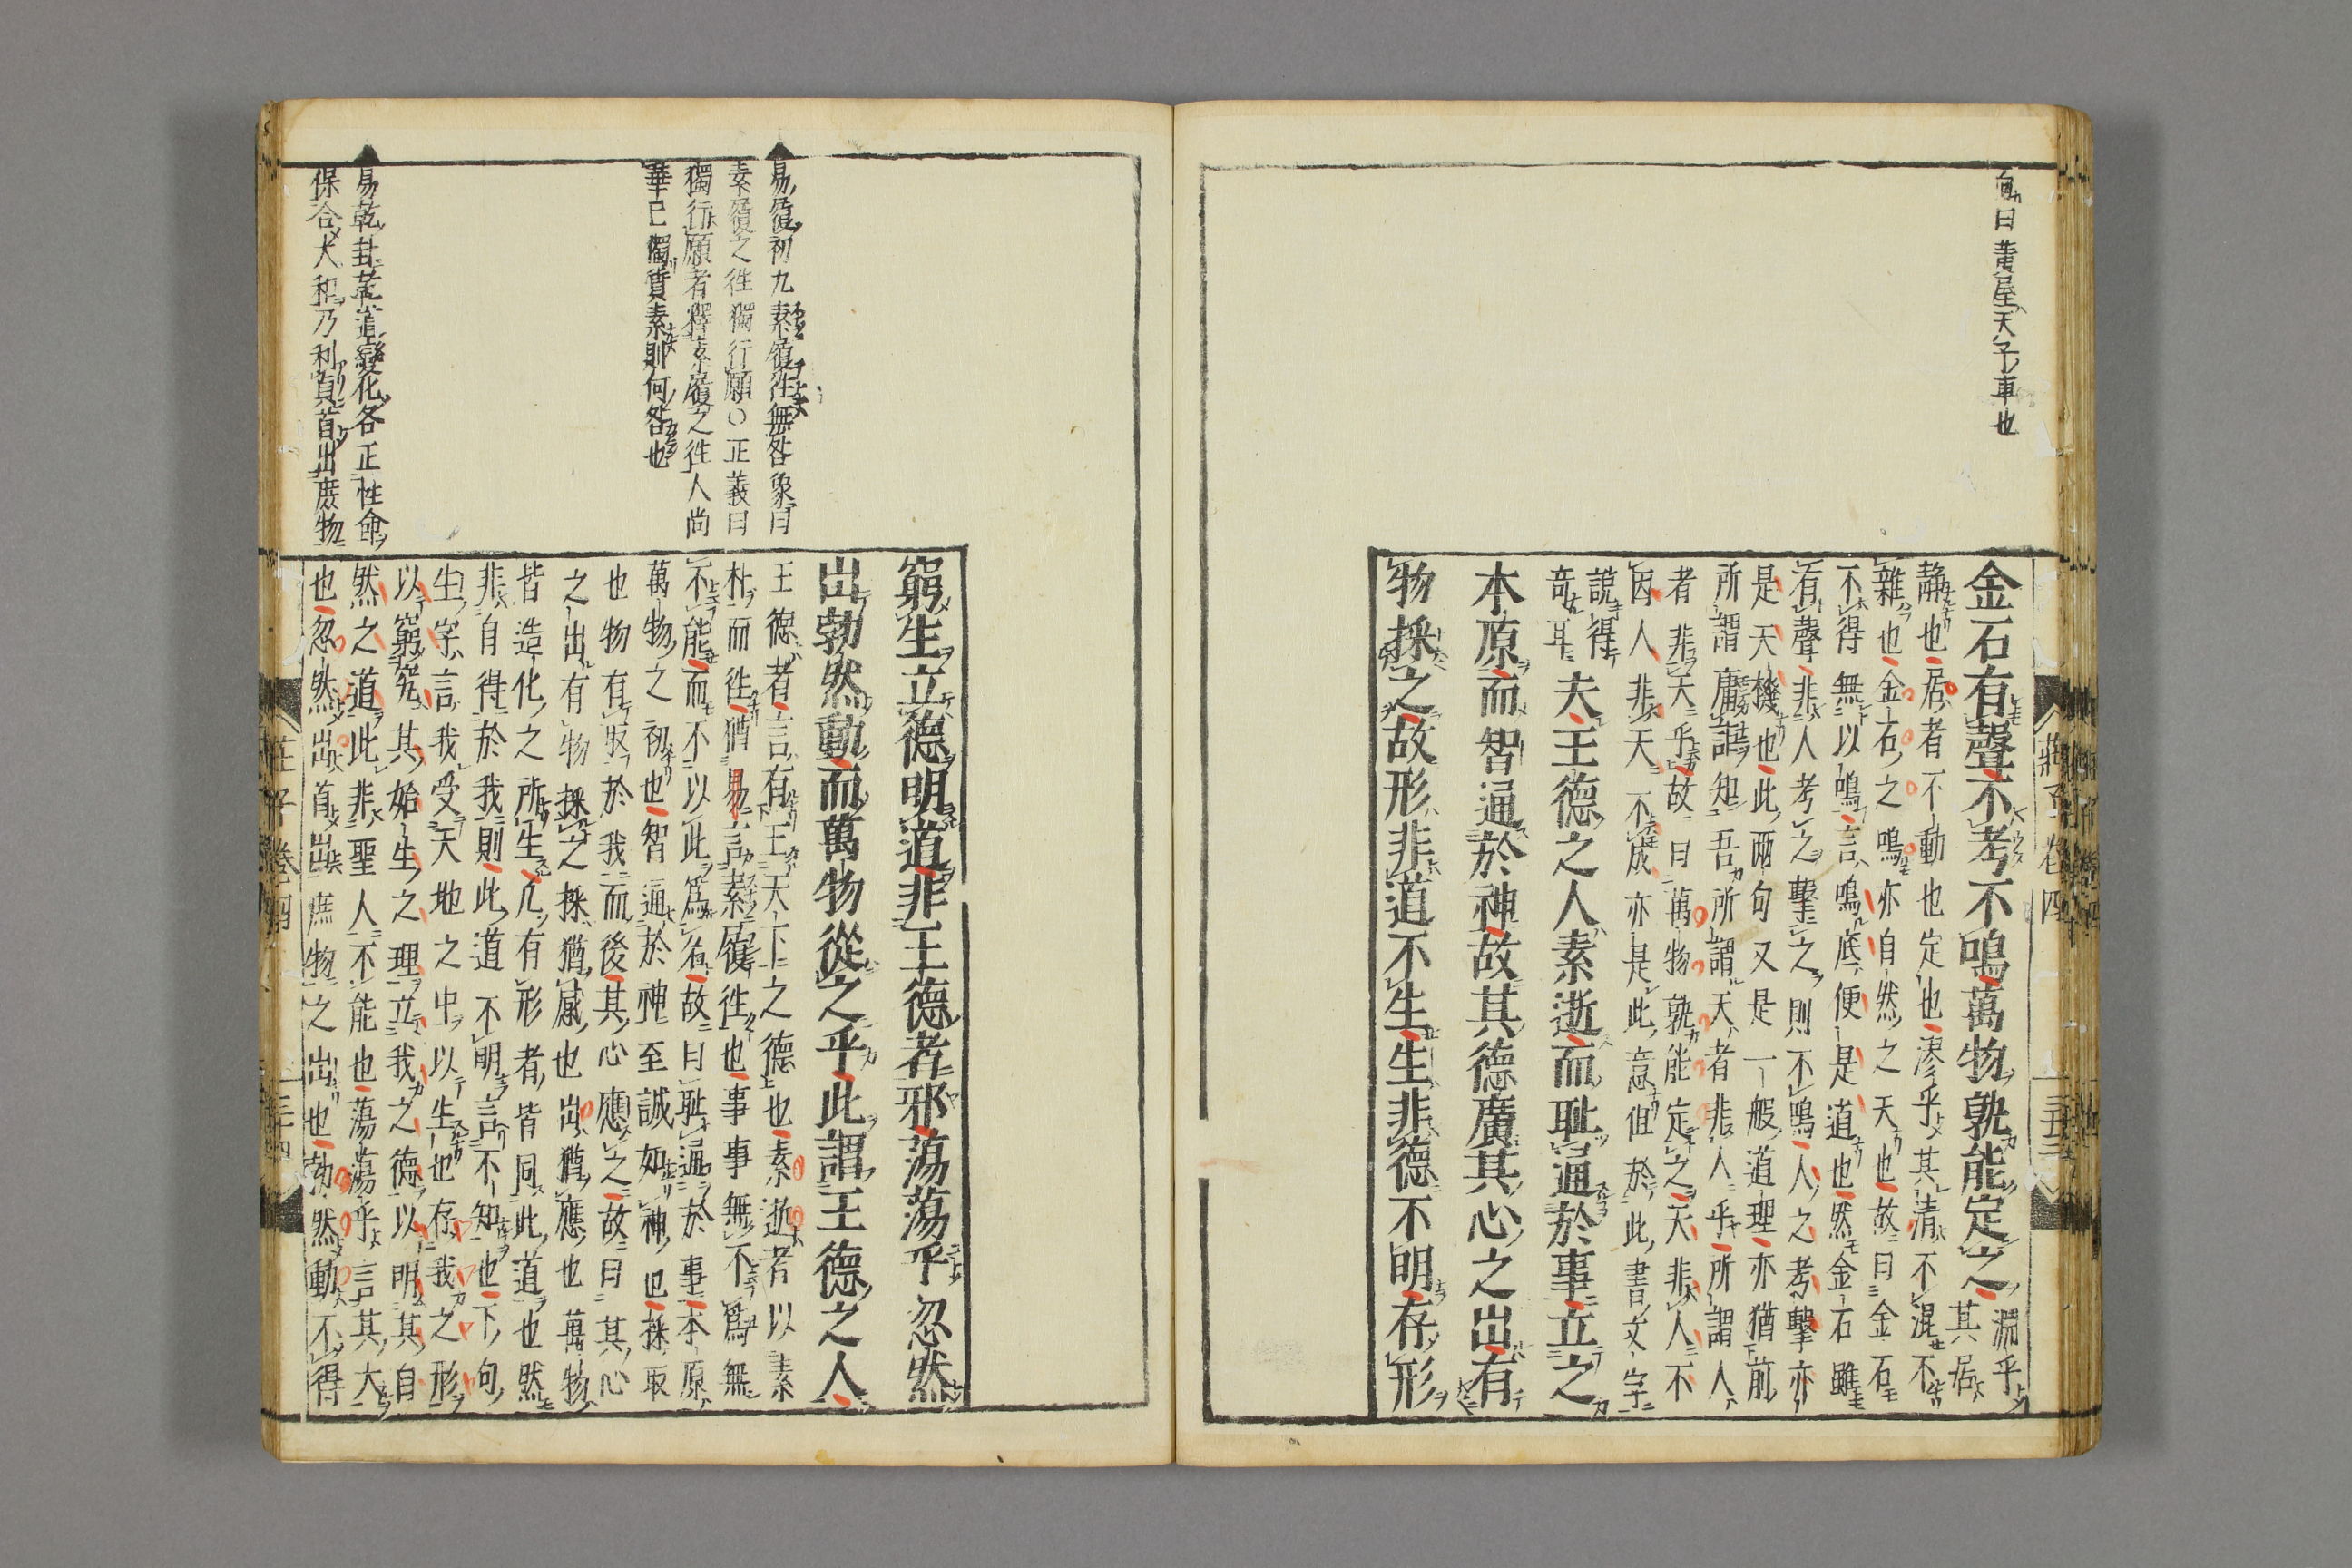 向曰黄屋天子車也
金石有聲不考不鳴萬物孰能定之淵乎
其居
靜也居者不動也定也漻乎其清不混不
雜也金石之鳴亦自然之天也故曰金石
不得無以鳴言鳴底便是道也然金石雖
有聲非人考之擊之則不鳴人之考擊亦
是天機也此兩句又是一般道理亦猶前
所謂庸詎知吾所謂天者非人乎所謂人
者非天乎故曰萬物孰能定之天非人不
因人非天不成亦是此意但於此書文字
說得
奇耳
夫王德之人素逝而耻通於事立之
本原而智通於神故其德廣其心之出有
物採之故形非道不生生非德不明存形
窮生立德明道非王德者邪蕩蕩乎忽然
出勃然動而萬物從之乎此謂王德之人
王德者言有王天下之德也素逝者以素
朴而徃猶易言素履徃也事事無不為無
不能而不以此為名故曰耻通於事本原
萬物之初也智通於神至誠如神也採取
也物有取於我而後其心應之故曰其心
之出有物採之採猶感也出猶應也萬物
皆造化之所生凢有形者皆同此道也然
非自得於我則此道不明言不知也下句
生字言我受天地之中以生也存我之形
以窮究其始生之理立我之德以明其自
然之道此非聖人不能也蕩蕩乎言其大
也忽然出首出庶物之出也勃然動不得
易復初九素履徃無咎象曰
素履之徃獨行願○正義曰
獨行願者釋素履之徃人尚
華己獨質素則何咎也
易乾卦乾道變化各正性命
保合大和乃利貞首出庶物
莊子卷四
三十四